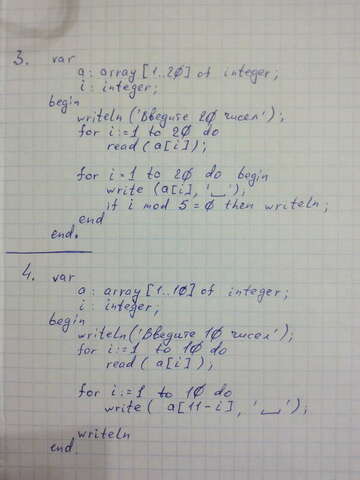 3. var
a: array [1..20] of integer;
i: integer;
begin
writeln ('Введите 20 чисел');
for i:=1 to 20 do
read (a[i]);
for i=1 to 20 do begin
write (a[i], '␣');
if i mod 5=0 then writeln;
end
end.
4. var
a: array [1..10] of integer;
i: integer;
begin
writeln('Введите 10 чисел');
for i:=1 to 10 do
read (a[i]);
for i:=1 to 10 do
write ( a[11-i], '␣');
writeln
end.